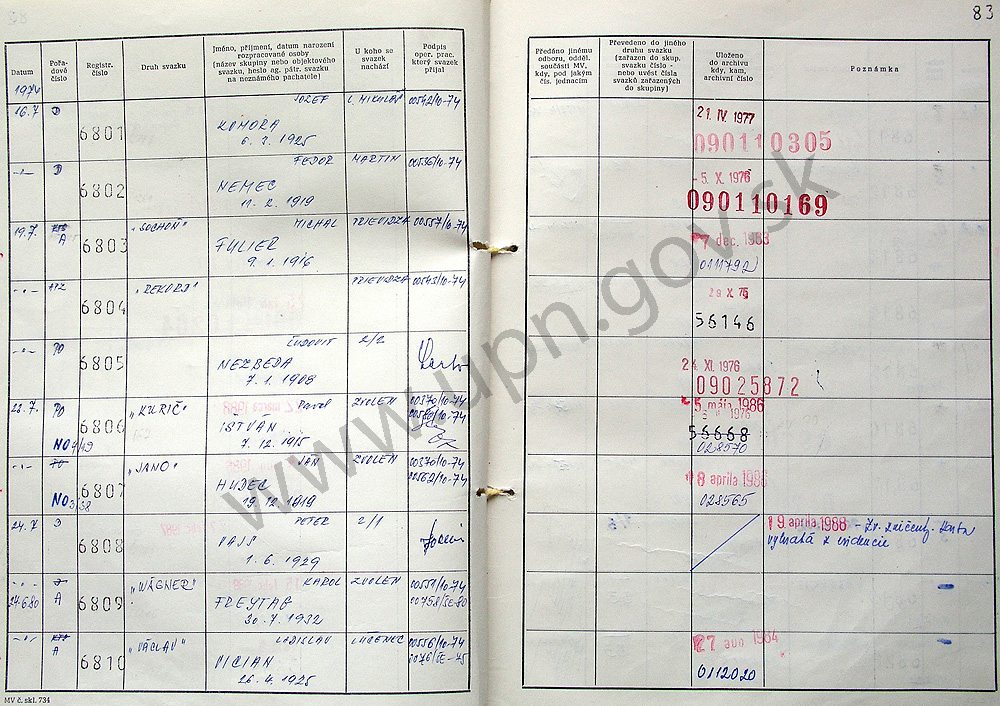 83
Datum
Pořa-
dové
číslo
Registr.
číslo
Druh svazku
Jméno, příjmení, datum narození
rozpracované osoby
(název skupiny nebo objektového
svazku, heslo ag. pátr. svazku
na neznámého pachatele)
U koho se
svazek
nachází
Podpis
oper. prac.
který svazek
přijal
Předáno jinému
odboru, odděl.
součásti MV,
kdy, pod jakým
čís. jednacím
Převedeno do jiného
druhu svazku
(zařazen do skup.
svazku číslo -
nebo uvést čísla
svazků zařazených
do skupiny)
Uloženo
do archivu
kdy, kam,
archivní číslo
Poznámka
1974
16.7 D 6801 JOZEF L. MIKULÁŠ 00542/10-74
KOMORA
21. IV 1977
090110305
D 6802 FEDOR MARTIN 00536/10-74
NEMEC
11. 2. 1919
- 5. X. 1976
090110169
19.7. A 6803 "SOCHOŇ" MICHAL PRIEVIDZA 00557/10-74
FULIER
9. 1. 1916
7 dec. 1983
0111792
6804 "REKORD" PRIEVIDZA 00543/10-74
29 X 76
56146
PO 6805 ĽUDOVIT 2/2
NEZBEDA
7. 1. 1908
24. XI. 1976
09025872
PO 6806 "KURIČ" Pavol ZVOLEN 00370/10-74
IŠTVAN
7. 12. 1915
NO
5. mája 1986
56668
028570
6807 "JANO" JAN ZVOLEN 00370/10-74
HUDEC
19. 12. 1919
NO
18 apríla 1986
028565
24.7 D 6808 PETER 2/1
1. 6. 1929
19 apríla 1988
vybratá z evidencie
24.6.80 A 6809 "WÁGNER" KAROL ZVOLEN 00551/10-74
00758/SE-80
FREYTAG
30. 7. 1932
A 6810 "VÁCLAV" LADISLAV LUČENEC 00556/10-74
VICIAN
26. 4. 1925
27 aug 1984
0112020
MV č. skl. 734
www.upn.gov.sk